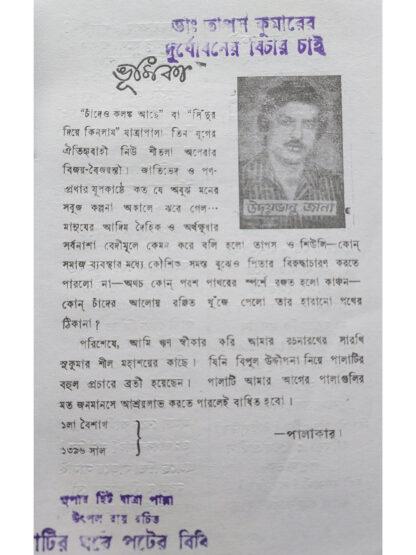 ডাঃ তাপস কুমারের
দুর্যোধনের বিচার চাই
ভূমিকা
“চাঁদেও কলঙ্ক আছে” বা “সিঁদুর
দিয়ে কিনলাম” যাত্রাপালা তিন যুগের
ঐতিহ্যবাহী নিউ শীতলা অপেরার
বিজয়-বৈজয়ন্তী। জাতিভেদ ও পণ-
প্রথার যূপকাষ্ঠে কত যে অবুঝ মনের
সবুজ কল্পনা অকালে ঝরে গেল···
মানুষের আদিম দৈহিক ও অর্থক্ষুধার
সর্বনাশা বেদীমূলে কেমন করে বলি হলো তাপস ও শিউলি—কোন্
সমাজ ব্যবস্থার মধ্যে কৌশিক সমস্ত বুঝেও পিতার বিরুদ্ধাচারণ করতে
পারলো না—অথচ কোন্ পরশ পাথরের স্পর্শে রজত হলো কাঞ্চন—
কোন্ চাঁদের আলোয় রঞ্জিত খুঁজে পেলো তার হারানো পথের
ঠিকানা ?
উদয়ভানু জানা
পরিশেষে, আমি ঋণ স্বীকার করি আমার রচনারথের সারথি
সুকুমার শীল মহাশয়ের কাছে। যিনি বিপুল উদ্দীপনা নিয়ে পালাটির
বহুল প্রচারে ব্রতী হয়েছেন। পালাটি আমার আগের পালাগুলির
মত জনমানসে আশ্রয়লাভ করতে পারলেই বাধিত হবো।
১লা বৈশাখ
—পালাকার।
১৩৯৬ সাল
সুপার হিট যাত্রা পালা
উৎপল রায় রচিত
মাটির ঘরে পটের বিবি